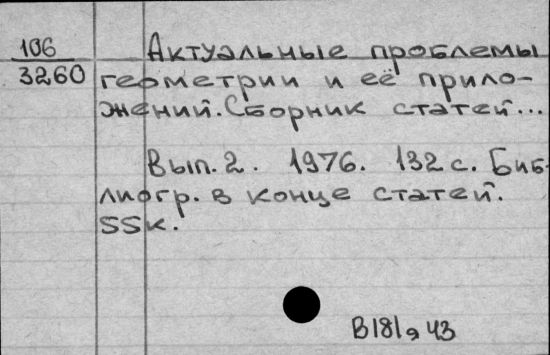 106
3260
Актуальные проблемы
геометрии и её прило-
жений. Сборник статей...
Вып. 2. 1976. 132 с. Биб-
лиогр. в конце статей.
SSK.
B181, 43